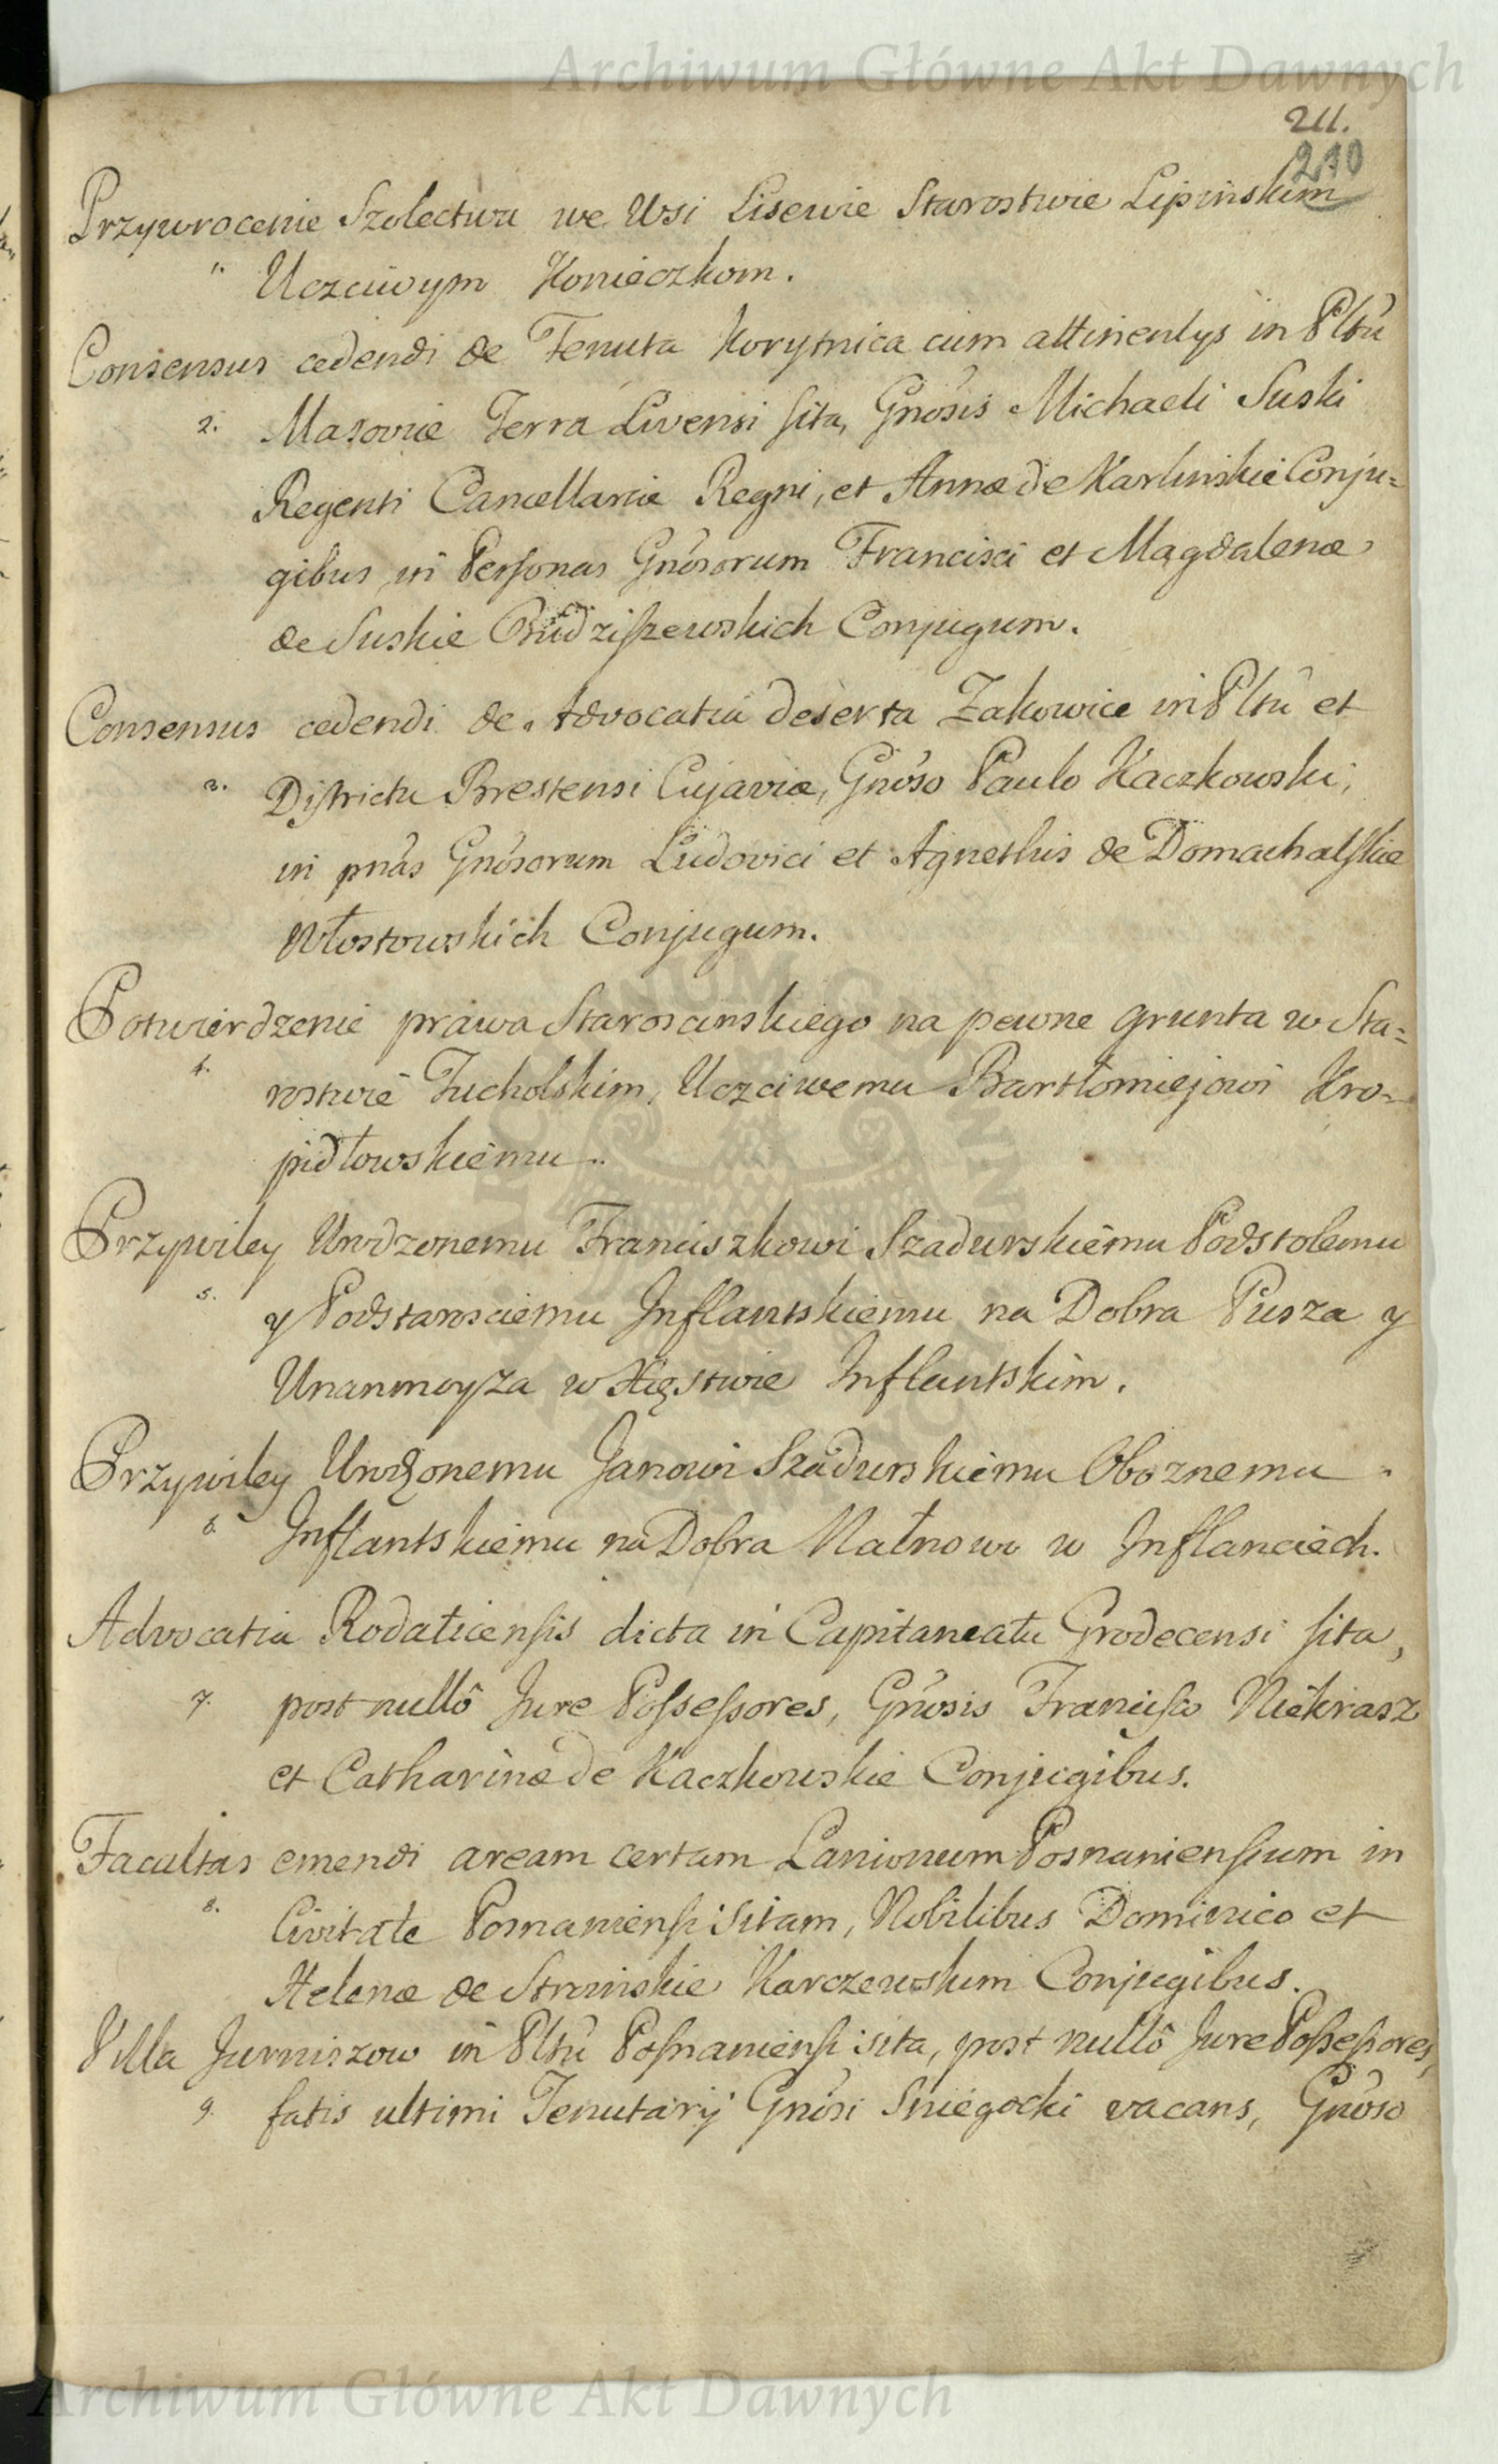 Archiwum Główne Akt Dawnych
211.
210
Przywrocenie Szolectwa we Wsi Lisewie Starostwie Lipinskim
1. Uczciwym Konieczkom.
Consensus cedendi de Tenuta Korytnica cum attinentys in Pltu
2. Masoviæ Terra Livensi sita, Gnosis Michaeli Suski
Regenti Cancellariæ Regni, et Annæ de Karlinskie Conju=
gibus in Personas Gnosorum Francisci et Magdalenæ
de Suskie Budziszewskich Conjugum.
Consensus cedendi de Advocatia deserta Zakowice in Pltu et
3. Districtu Brestensi Cujaviæ, Gnoso Paulo Kaczkowski,
in pnas Gnosorum Ludovici et Agnethis de Domachalskie
Włostowskich Conjugum.
Potwierdzenie prawa Staroscinskiego na pewne grunta w Sta=
4. rostwie Tucholskim, Uczciwemu Bartłomiejowi Kro=
pidłowskiemu.
Przywiley Urodzonemu Franciszkowi Szadurskiemu Podstolemu
5. y Podstarosciemu Inflantskiemu na Dobra Pusza y
Unanmoyza w Xięstwie Inflantskim.
Przywiley Urodzonemu Janowi Szadurskiemu Oboznemu
6. Inflantskiemu na Dobra Małnowo w Inflanciech.
Advocatia Rodaticensis dicta in Capitaneatu Grodecensi sita,
7. post nullô Jure Possessores, Gnosis Francisco Niekrasz
et Catharinæ de Kaczkowskie Conjugibus.
Facultas emendi aream certam Lanionum Posnaniensium in
8. Civitate Posnaniensi sitam, Nobilibus Dominico et
Helenæ de Stroinskie Karczewskim Conjugibus.
Villa Jurniszow in Pltu Posnaniensi sita, post nullô Jure Possessores,
9. fatis ultimi Tenutarij Gnosi Sniegocki vacans, Gnoso
Archiwum Główne Akt Dawnych